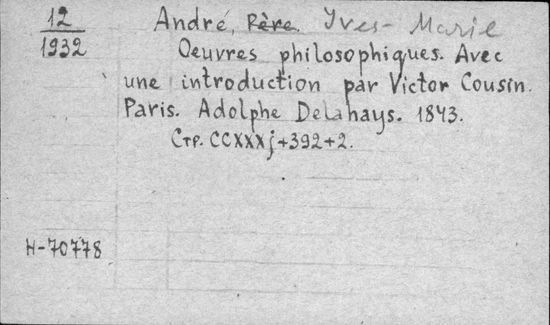 12
1932
André, Père. Yves-Marie
Oeuvres philosophiques. Avec
une introduction par Victor Cousin.
Paris. Adolphe Delahays. 1843.
Стр. CCXXXj+392+2.
H-70778